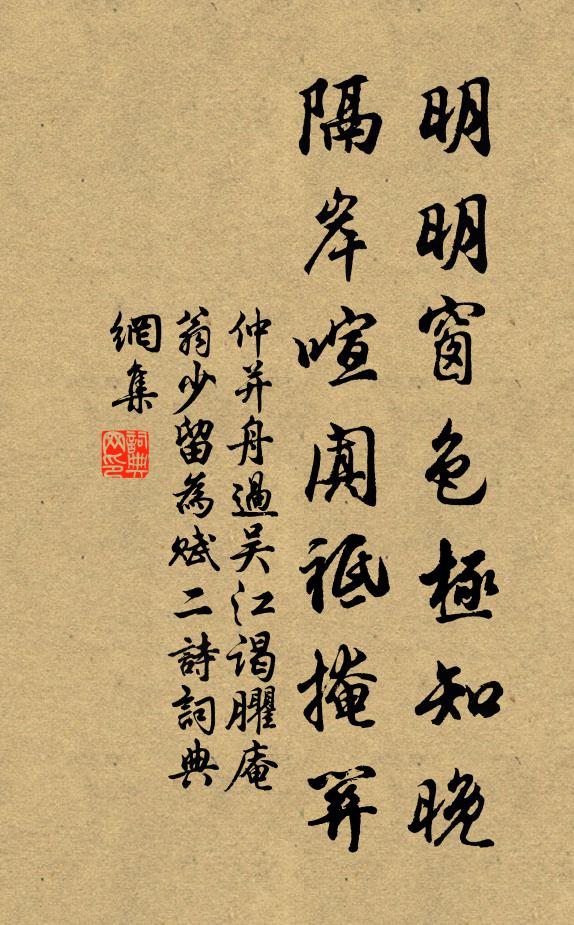 明明窗色極知晚
隔岸喧闐祗掩關
仲并舟過吳江謁臞庵
翁少留為賦二詩詞典
網集
詞典
网印